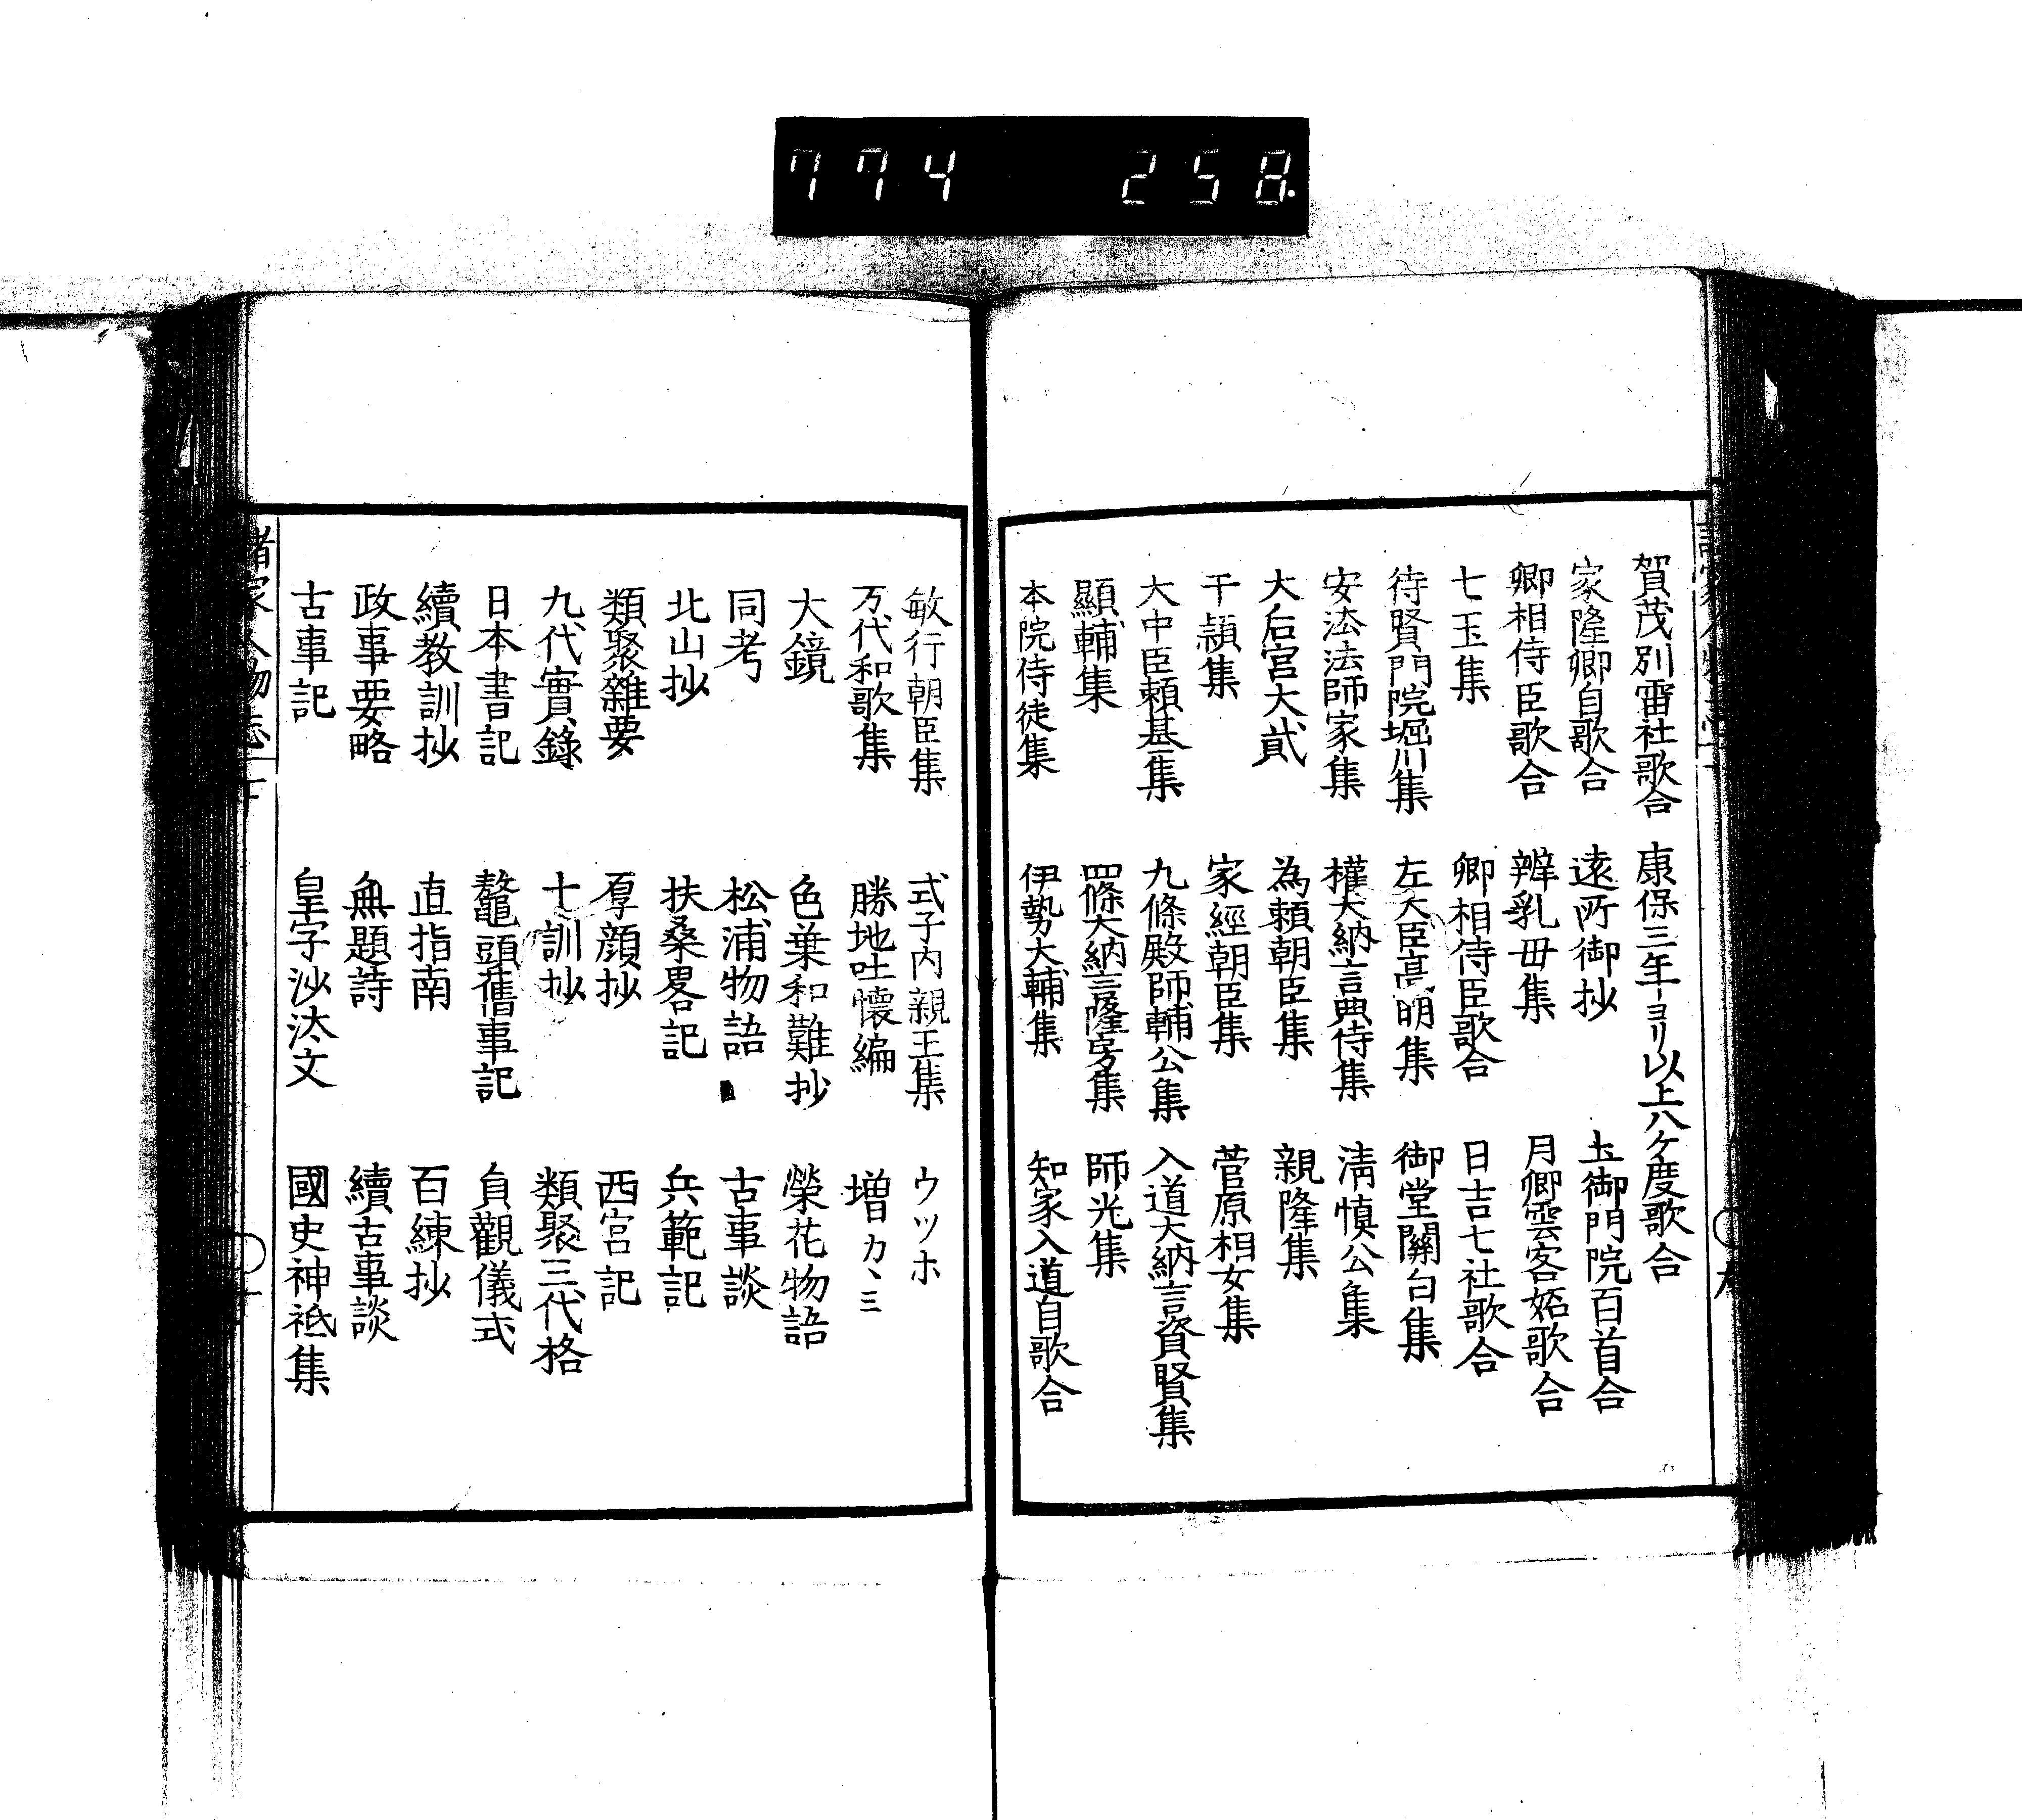 774 258
賀茂別雷社歌合 康保三年ヨリ以上八ケ度歌合
家隆卿自歌合 遠所御抄 土御門院百首合
卿相侍臣歌合 辨乳毋集 月卿雲客妬歌合
七玉集 卿相侍臣歌合 日吉七社歌合
待賢門院堀川集 左大臣高明集 御堂關白集
安法法師家集 權大納言典侍集 淸愼公集
大后宮大貳 為賴朝臣集 親隆集
干頴集 家經朝臣集 菅原相女集
大中臣賴基集 九條殿師輔公集 入道大納言資賢集
顯輔集 四條大納言隆房集 師光集
本院侍徒集 伊勢大輔集 知家入道自歌合
敏行朝臣集 式子内親王集 ウツホ
万代和歌集 勝地吐懷編 増カヽミ
大鏡 色葉和難抄 榮花物語
同考 松浦物語 古事談
北山抄 扶桑畧記 兵範記
類聚雜要 厚顔抄 西宮記
九代實錄 十訓抄 類聚三代格
日本書記 鼇頭舊事記 貞觀儀式
續教訓抄 直指南 百練抄
政事要略 無題詩 續古事談
古事記 皇字沙汰文 國史神祗集